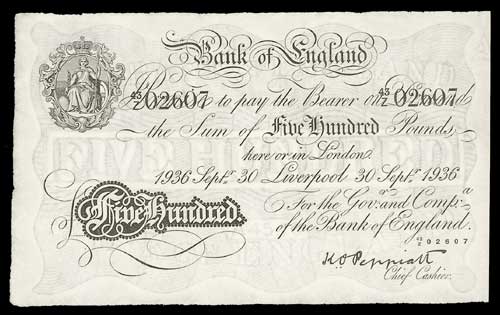 Bank of England
43/Z 02607 43/Z 02607
to pay the Bearer on
the Sum of Five Hundred Pounds
here or in London.
1936 Septr. 30 Liverpool 30 Septr. 1936
For the Govr. and Compa.
of the Bank of England.
£ Five Hundred
43/Z 02607
K.O. Peppiatt
Chief Cashier.